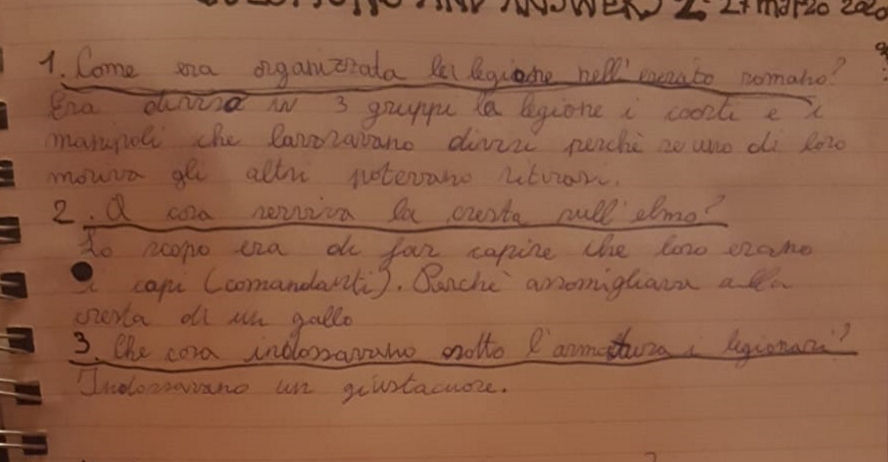 QUESTIONS AND ANSWERS 2. 27 marzo 2020
1. Come era organizzata la legione nell'esercito romano?
Era divisa in 3 gruppi la legione i coorti e i
manipoli che lavoravano divisi perchè se uno di loro
moriva gli altri potevano ritirarsi.
2. A cosa serviva la cresta sull'elmo?
Lo scopo era di far capire che loro erano
i capi (comandanti). Perchè assomigliava alla
cresta di un gallo
3. Che cosa indossavano sotto l'armatura i legionari?
Indossavano un giustacuore.